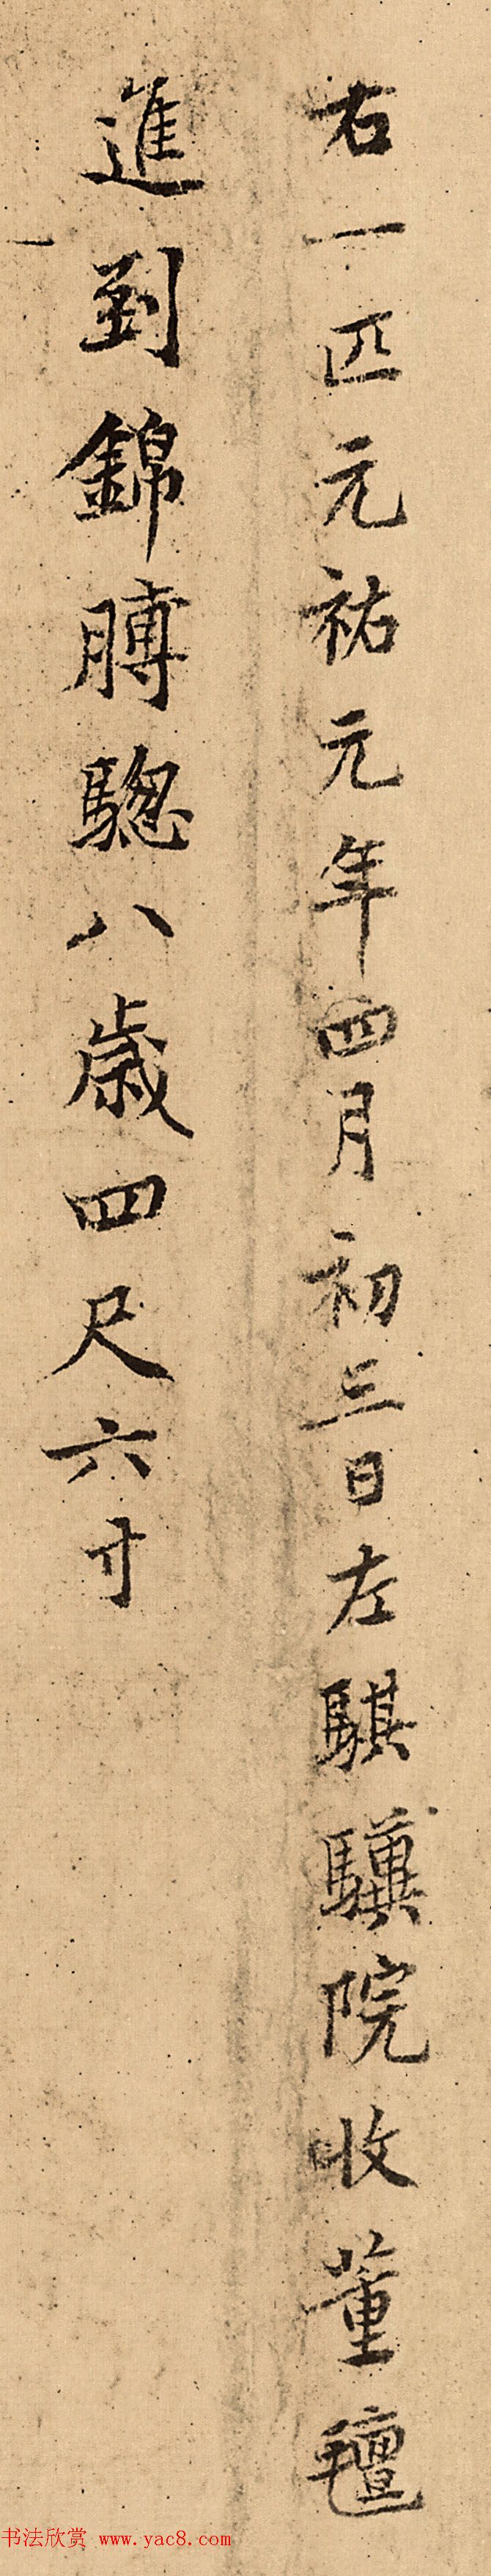 右一匹元祐元年四月初三日左騏驥院收董氊
進到錦膊驄八歲四尺六寸
书法欣赏 www.yac8.com